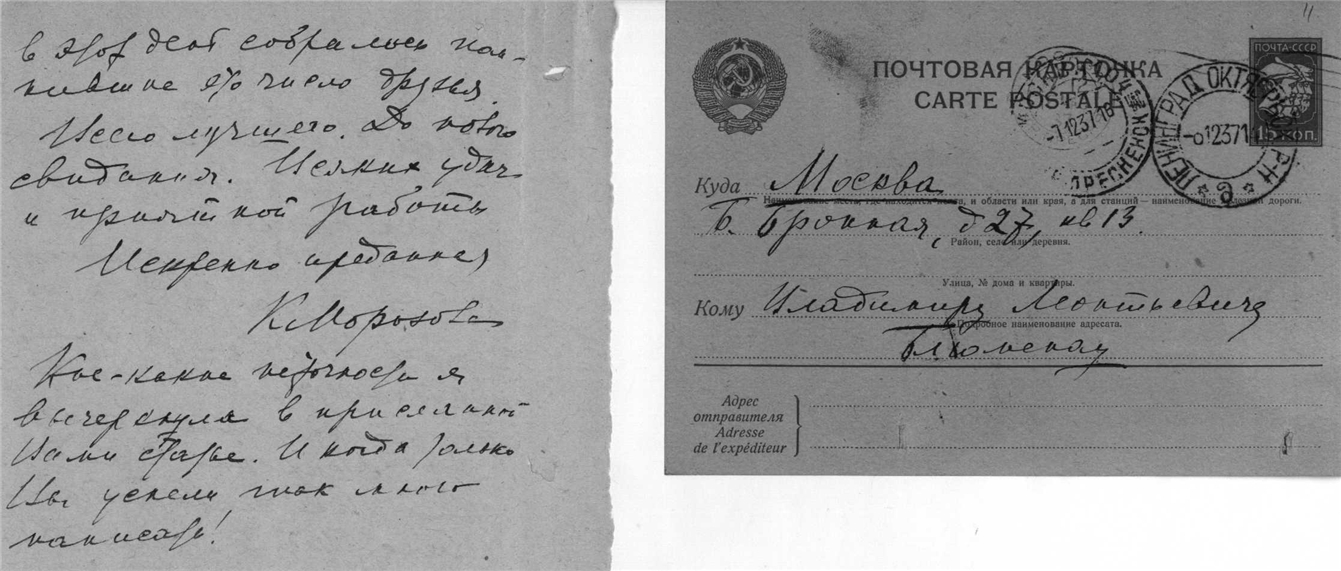 в этот день собралось наи-
большее число друзья.
Всего лучшего. До нового
свидания. Всяких удач
и приятной работы
Искренно преданная
К Морозова
Кое-какие неточности я
вычеркнула в присланной
Вами статье. И когда только
Вы успели так много
написать!
11
ПОЧТА-СССР
15 КОП.
ПОЧТОВАЯ КАРТОЧКА
CARTE POSTALE
-7.12.37.18
ЛЕНИНГРАД ОКТЯБРЬ
-6.12.37.1
Куда Москва
Наименование места, где находится почта, и области или края, а для станций — наименование железной дороги.
Б. Бронная, д 27, кв 13.
Район, село или деревня.
Улица, № дома и квартиры.
Кому Владимиру Леонтьевичу
Подробное наименование адресата.
Адрес
отправителя
Adresse
de l'expéditeur